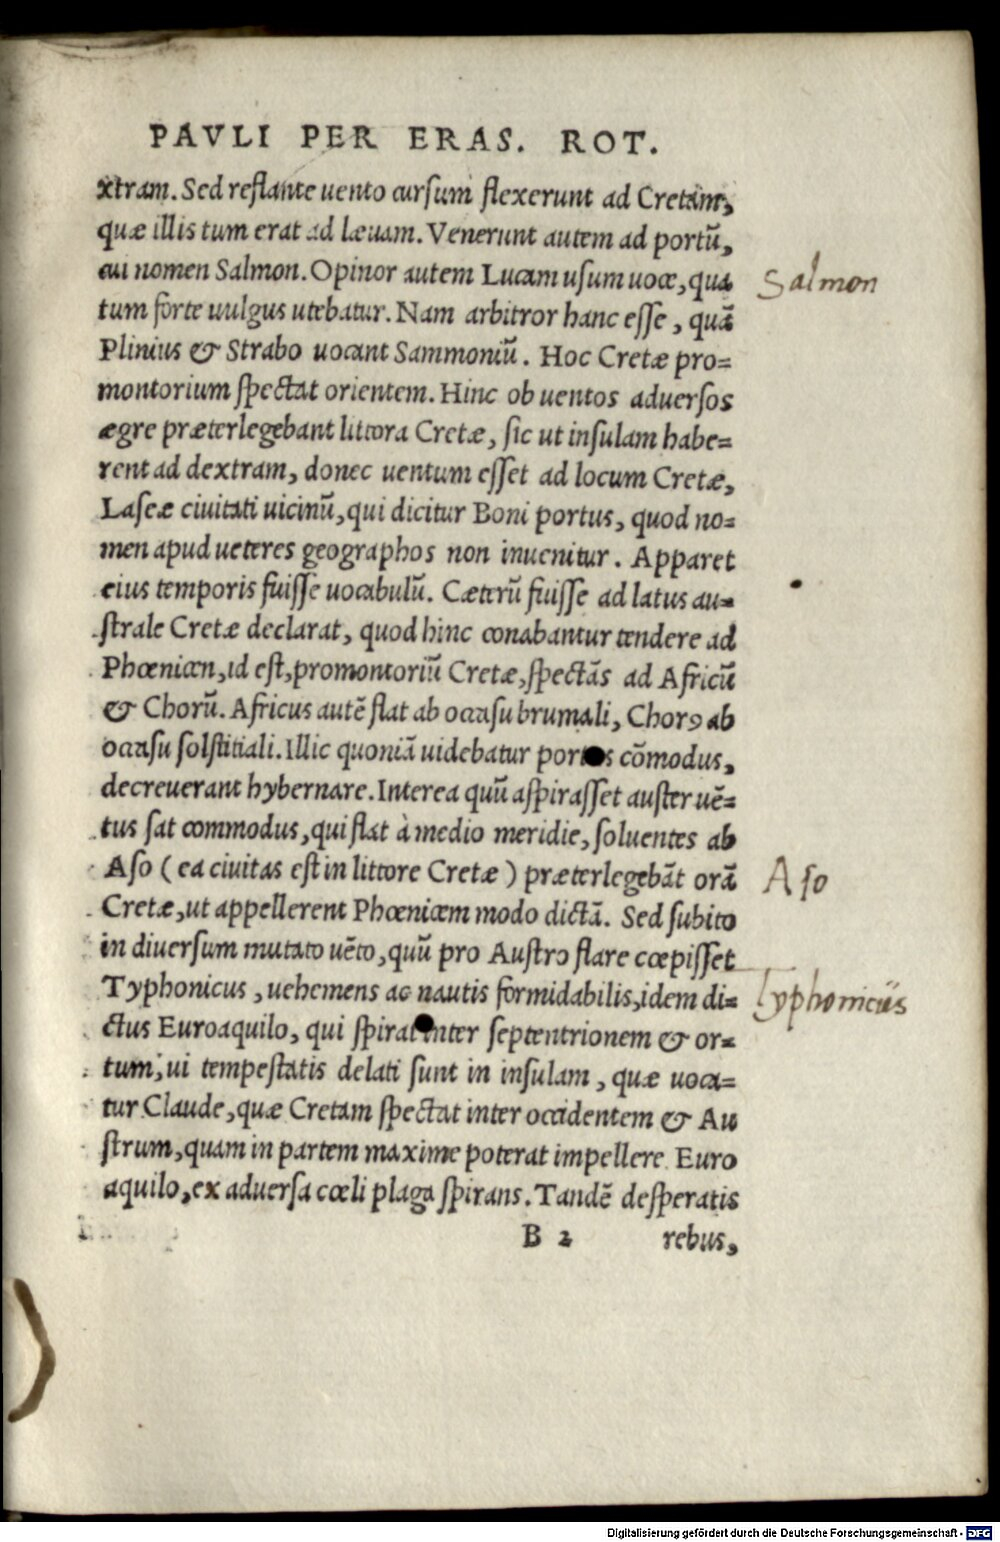 PAVLI PER ERAS. ROT.
xtram. Sed reflante uento cursum flexerunt ad Cretam,
quæ illis tum erat ad læuam. Venerunt autem ad portū,
cui nomen Salmon. Opinor autem Lucam usum uoce, qua
Salmon
tum forte uulgus utebatur. Nam arbitror hanc esse, quā
Plinius & Strabo uocant Sammoniū. Hoc Cretæ pro=
montorium spectat orientem. Hinc ob uentos aduersos
ægre præterlegebant littora Cretæ, sic ut insulam habe=
rent ad dextram, donec uentum esset ad locum Cretæ,
Laseæ ciuitati uicinū, qui dicitur Boni portus, quod no=
men apud ueteres geographos non inuenitur. Apparet
eius temporis fuisse uocabulū. Cæterū fuisse ad latus au=
strale Cretæ declarat, quod hinc conabantur tendere ad
Phœnicen, id est, promontoriū Cretæ, spectās ad Africū
& Chorū. Africus autē flat ab occasu brumali, Chorꝰ ab
occasu solstitiali. Illic quoniā uidebatur portus cōmodus,
decreuerant hybernare. Interea quū aspirasset auster uē=
tus sat commodus, qui flat à medio meridie, soluentes ab
Aso (ea ciuitas est in littore Cretæ) præterlegebāt orā
Aso
Cretæ, ut appellerent Phœnicem modo dictā. Sed subito
in diuersum mutato uēto, quū pro Austro flare cœpisset
Typhonicus, uehemens ac nautis formidabilis, idem di=
Typhonicus
ctus Euroaquilo, qui spirat inter septentrionem & or=
tum, ui tempestatis delati sunt in insulam, quæ uoca=
tur Claude, quæ Cretam spectat inter occidentem & Au
strum, quam in partem maxime poterat impellere Euro
aquilo, ex aduersa cœli plaga spirans. Tandē desperatis
B 2 rebus,
Digitalisierung gefördert durch die Deutsche Forschungsgemeinschaft - DFG